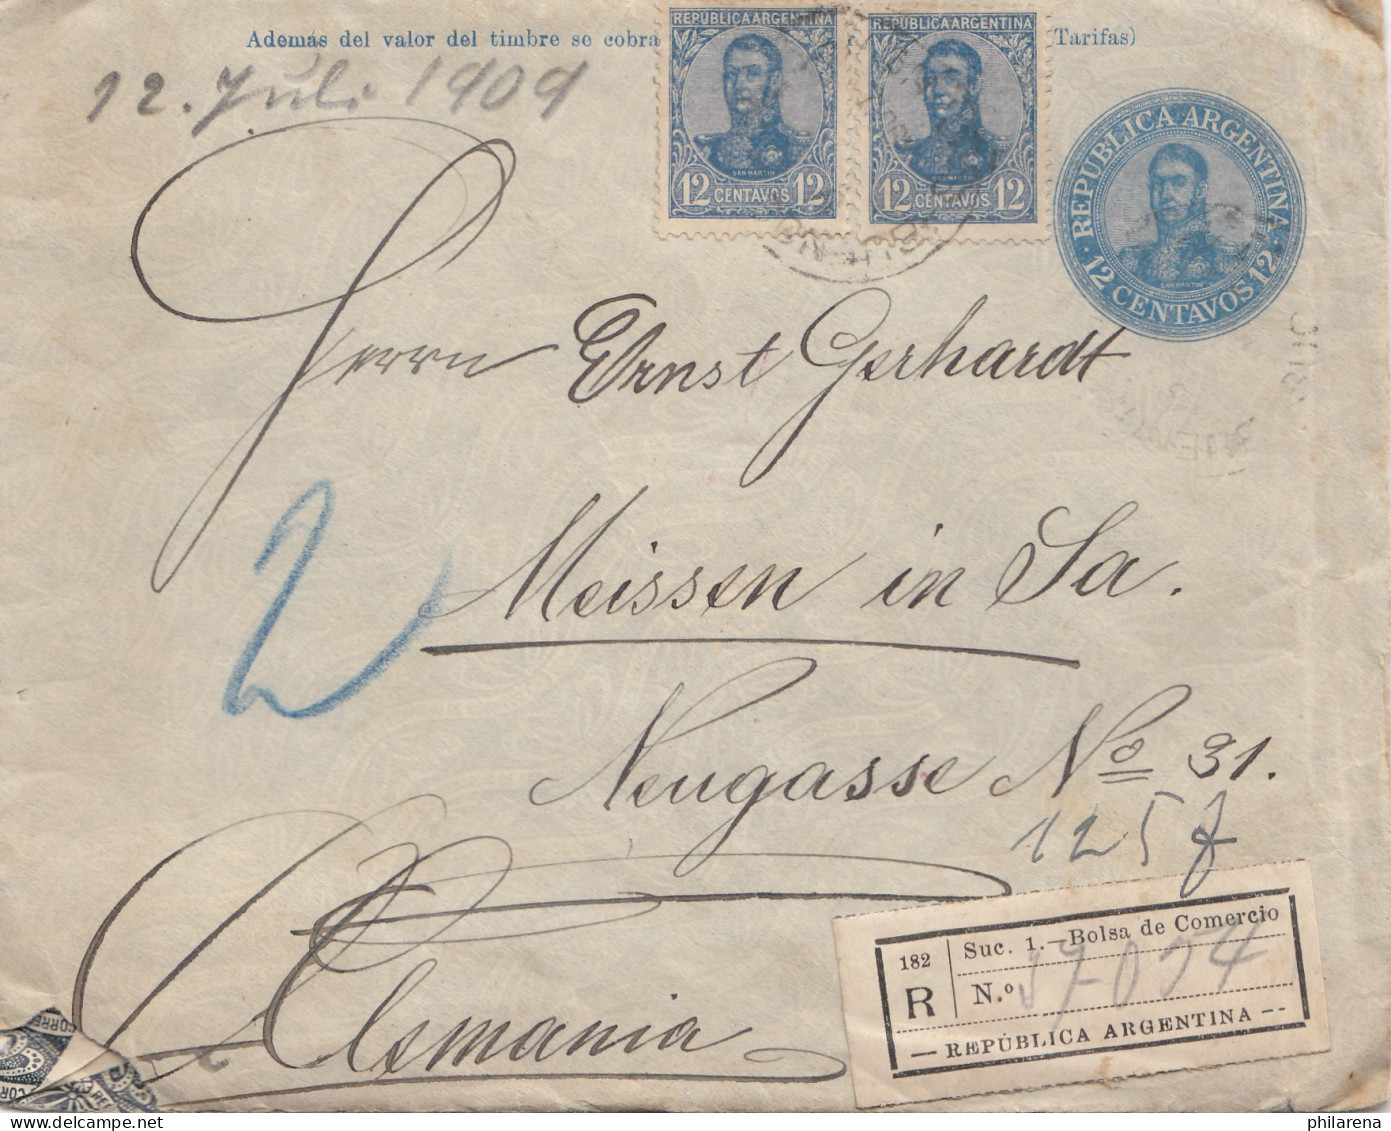 Además del valor del timbre se cobra
Tarifas)
12. Juli 1909
REPÚBLICA ARGENTINA
SAN MARTIN
12 CENTAVOS 12
REPÚBLICA ARGENTINA
SAN MARTIN
12 CENTAVOS 12
REPÚBLICA ARGENTINA
SAN MARTIN
12 CENTAVOS 12
Herrn Ernst Gerhardt
2
Meissen in Sa.
Neugasse No 31.
125
Alemania
182
R
Suc. 1.—Bolsa de Comercio
N.o
— REPÚBLICA ARGENTINA —
philarena.com